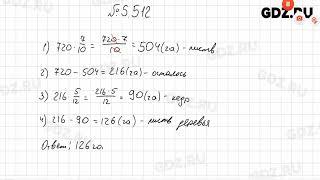 GDZ.RU
№5.512
1) 720 · 7/10 = 720·7/10 = 504(га) - листв
2) 720 - 504 = 216(га) - осталось
3) 216 · 5/12 = 216·5/12 = 90(га) - кедр
4) 216 - 90 = 126(га) - листв деревья
Ответ: 126 га.